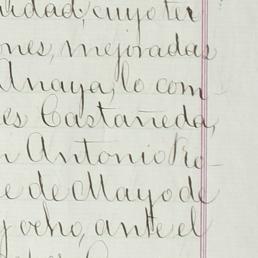 idad, cuyo ter
ones, mejoradas
Anaya, lo com
es Castañeda,
n Antonio Ro-
e de Mayo de
y ocho, ante el